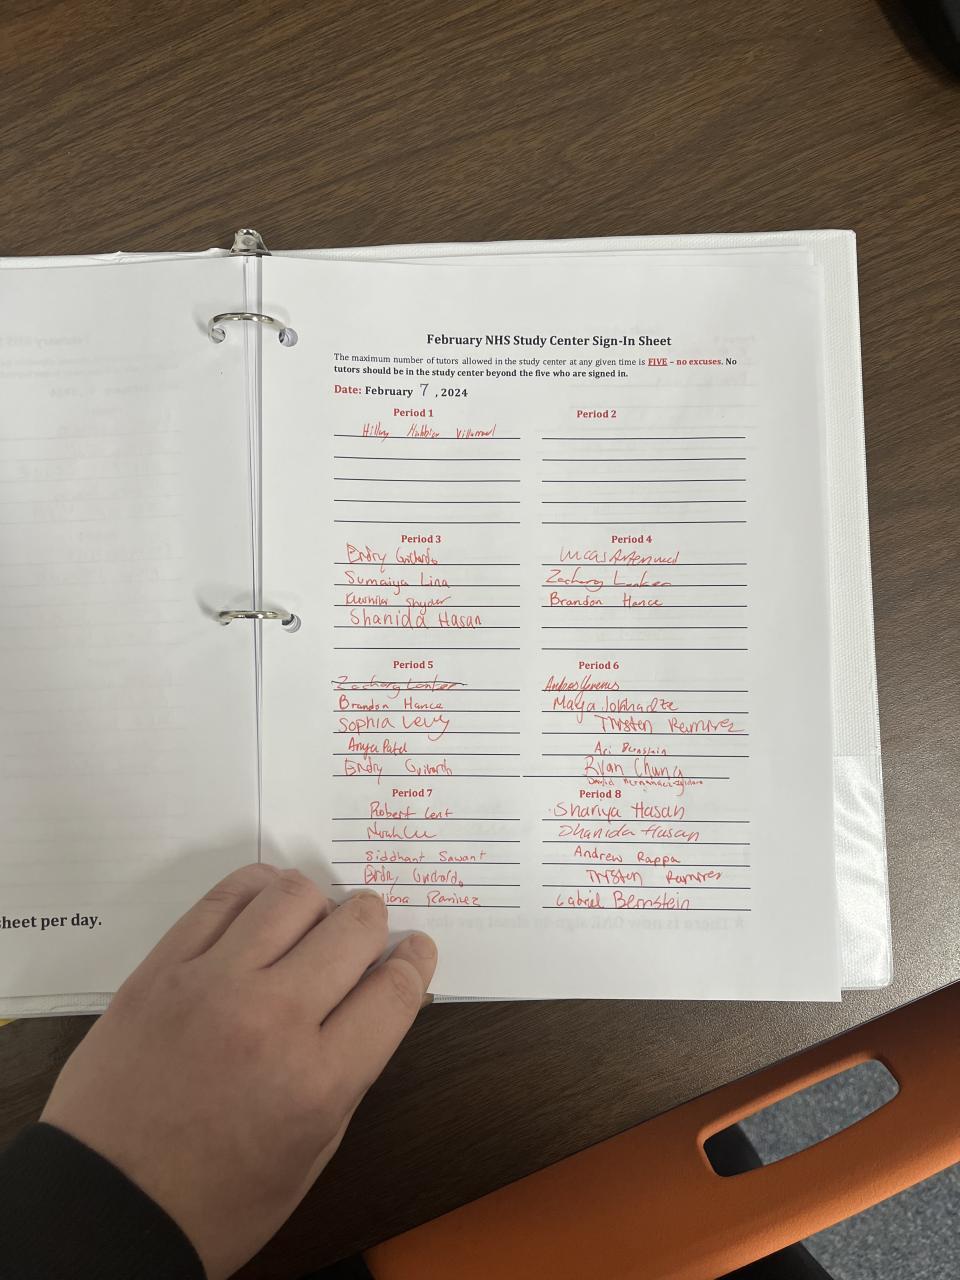 February NHS Study Center Sign-In Sheet
The maximum number of tutors allowed in the study center at any given time is FIVE – no excuses. No
tutors should be in the study center beyond the five who are signed in.
Date: February 7, 2024
Period 1
Period 2
Period 3
Endry
Sumaiya Lina
Snyder
Shanida Hasan
Period 4
Lucas
Zachary Lanker
Brandon Hance
Period 5
Zachary Lanker
Brandon Hance
Sophia Levy
Anya Patel
Endry
Period 6
Andreas
Maya
Trysten Ramirez
Ari Bernstein
Ryan Chung
David
Period 7
Robert Cent
Noah Liu
Siddhant Sawant
Endry
Ramirez
Period 8
Shariya Hasan
Shanida Hasan
Andrew Rappa
Trysten Ramirez
Gabriel Bernstein
sheet per day.